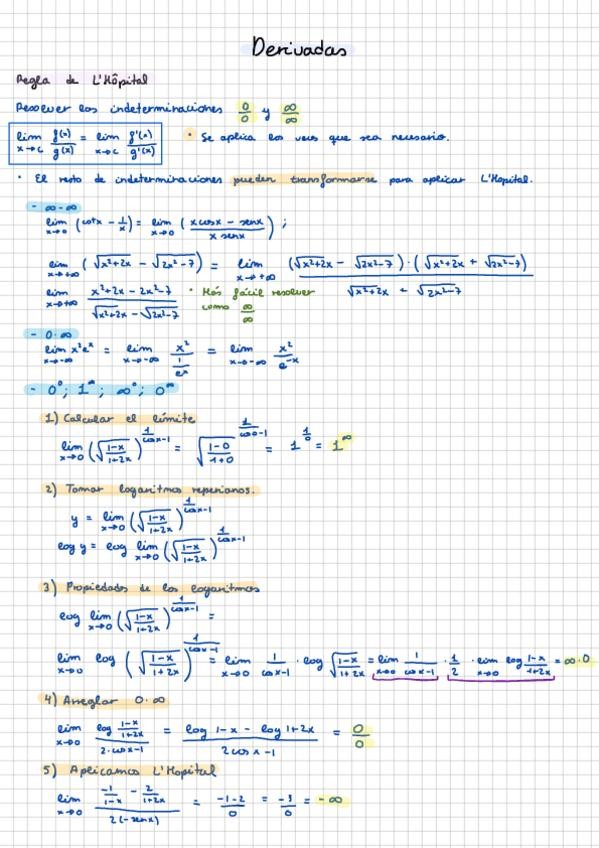 Derivadas
Regla de L'Hôpital
Resolver las indeterminaciones 0/0 y ∞/∞
lim x→c f(x)/g(x) = lim x→c f'(x)/g'(x) • Se aplica las veces que sea necesario.
• El resto de indeterminaciones pueden transformarse para aplicar L'Hopital.
- ∞-∞
lim x→0 (cotx - 1/x) = lim x→0 (xcosx - senx / x senx) ;
lim x→+∞ (√x²+2x - √2x²-7) = lim x→+∞ (√x²+2x - √2x²-7)·(√x²+2x + √2x²-7) / √x²+2x + √2x²-7
lim x→+∞ x²+2x - 2x²-7 / √x²+2x - √2x²-7 • Más fácil resolver
como ∞/∞
- 0·∞
lim x→-∞ x²eˣ = lim x→-∞ x² / (1/eˣ) = lim x→-∞ x²/e⁻ˣ
- 0⁰; 1^∞; ∞⁰; 0^∞
1) Calcular el límite
lim x→0 (√(1-x/1+2x))^(1/cosx-1) = √(1-0/1+0)^(1/cos0-1) = 1^(1/0) = 1^∞
2) Tomar logaritmos neperianos.
y = lim x→0 (√(1-x/1+2x))^(1/cosx-1)
log y = log lim x→0 (√(1-x/1+2x))^(1/cosx-1)
3) Propiedades de los logaritmos
log lim x→0 (√(1-x/1+2x))^(1/cosx-1) =
lim x→0 log (√(1-x/1+2x))^(1/cosx-1) = lim x→0 1/cosx-1 · log √(1-x/1+2x) = lim x→0 1/cosx-1 · 1/2 · lim x→0 log 1-x/1+2x = ∞·0
4) Arreglar 0·∞
lim x→0 log (1-x/1+2x) / 2·cosx-1 = log 1-x - log 1+2x / 2cosx-1 = 0/0
5) Aplicamos L'Hopital
lim x→0 (-1/1-x - 2/1+2x) / 2(-senx) = -1-2/0 = -3/0 = -∞